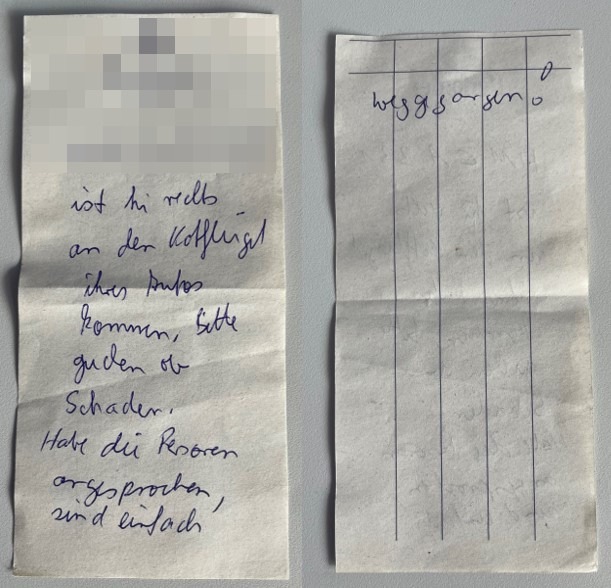 ist hi rechts
an den Kotflügel
ihres Autos
kommen, Bitte
gucken ob
Schaden.
Habe die Personen
angesprochen,
sind einfach
weggegangen!